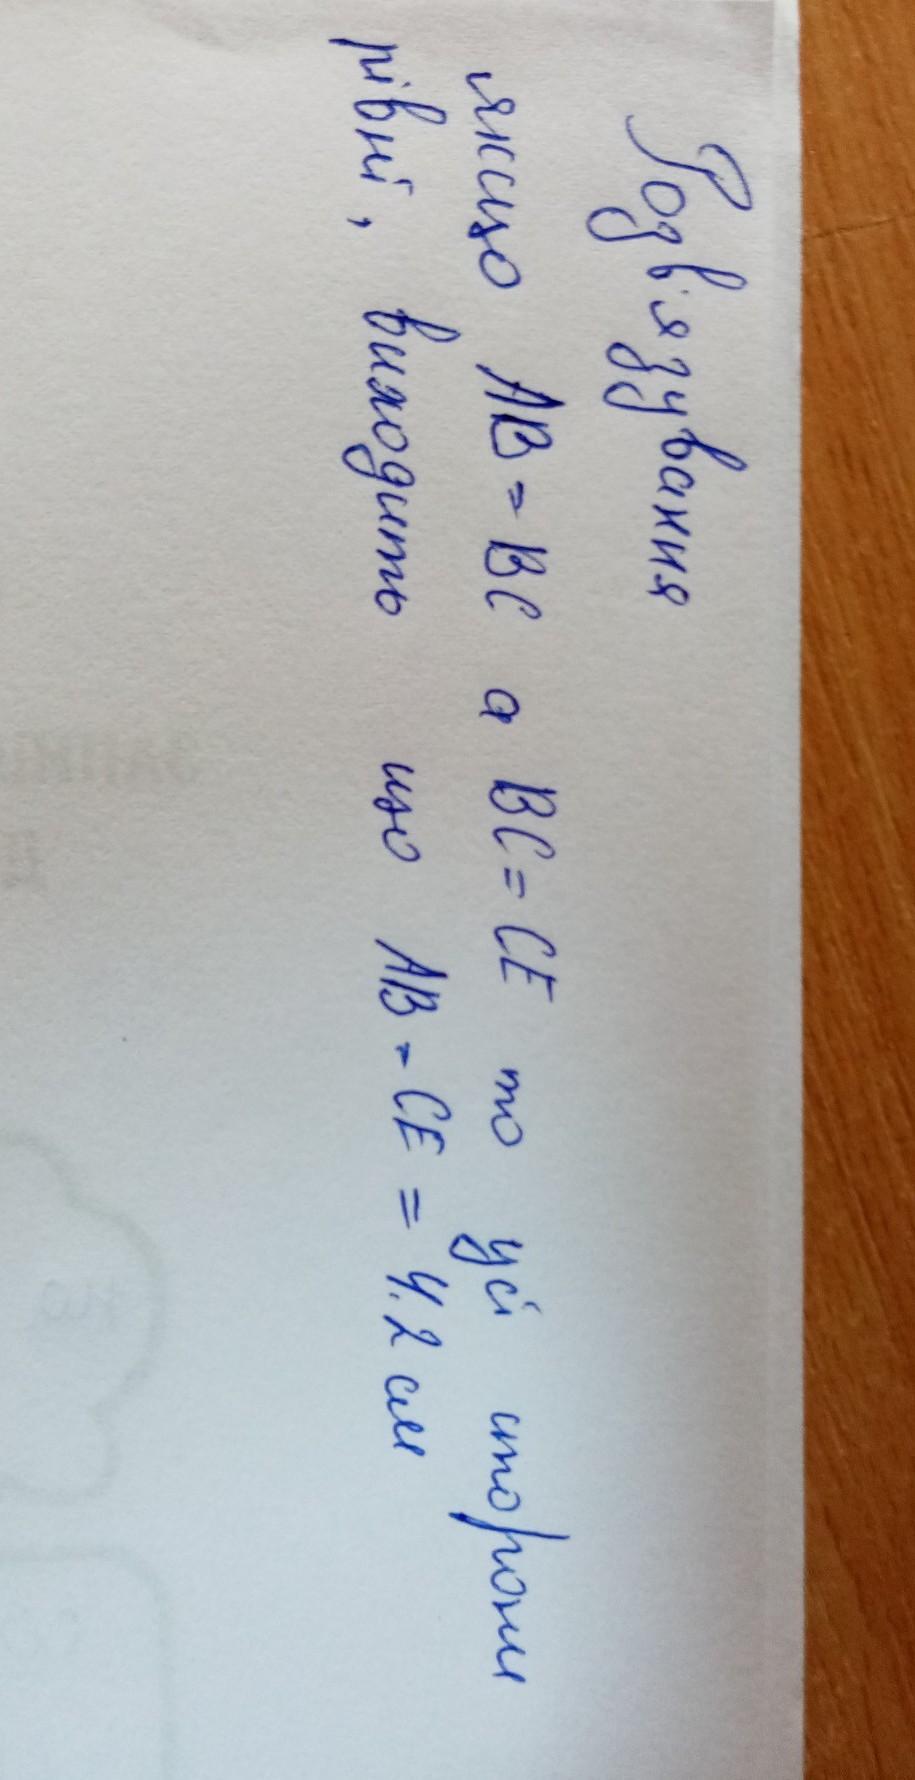 Розв'язування
якщо AB = BC а BC = CE то усі сторони
рівні, виходить що AB = CE = 4.2 см